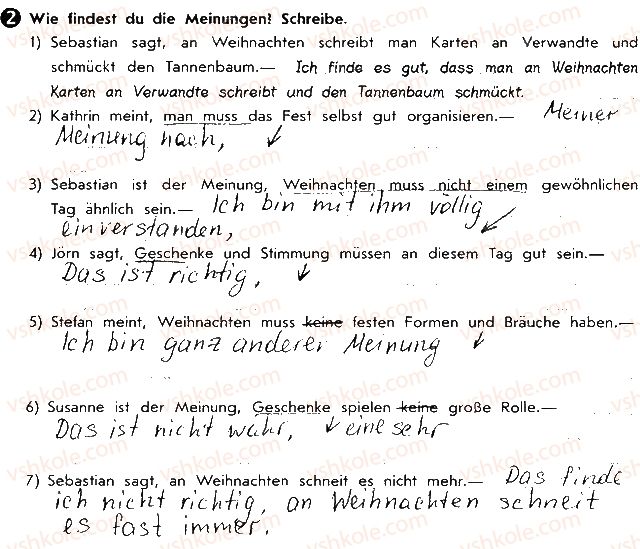 2 Wie findest du die Meinungen? Schreibe.
1) Sebastian sagt, an Weihnachten schreibt man Karten an Verwandte und
schmückt den Tannenbaum.— Ich finde es gut, dass man an Weihnachten
Karten an Verwandte schreibt und den Tannenbaum schmückt.
2) Kathrin meint, man muss das Fest selbst gut organisieren.— Meiner
Meinung nach, ↙
3) Sebastian ist der Meinung, Weihnachten muss nicht einem gewöhnlichen
Tag ähnlich sein.— Ich bin mit ihm völlig
einverstanden, ↙
4) Jörn sagt, Geschenke und Stimmung müssen an diesem Tag gut sein.—
Das ist richtig, ↙
5) Stefan meint, Weihnachten muss keine festen Formen und Bräuche haben.—
Ich bin ganz anderer Meinung ↙
6) Susanne ist der Meinung, Geschenke spielen keine große Rolle.—
Das ist nicht wahr, ↙ eine sehr
7) Sebastian sagt, an Weihnachten schneit es nicht mehr.— Das finde
ich nicht richtig, an Weihnachten schneit
es fast immer.